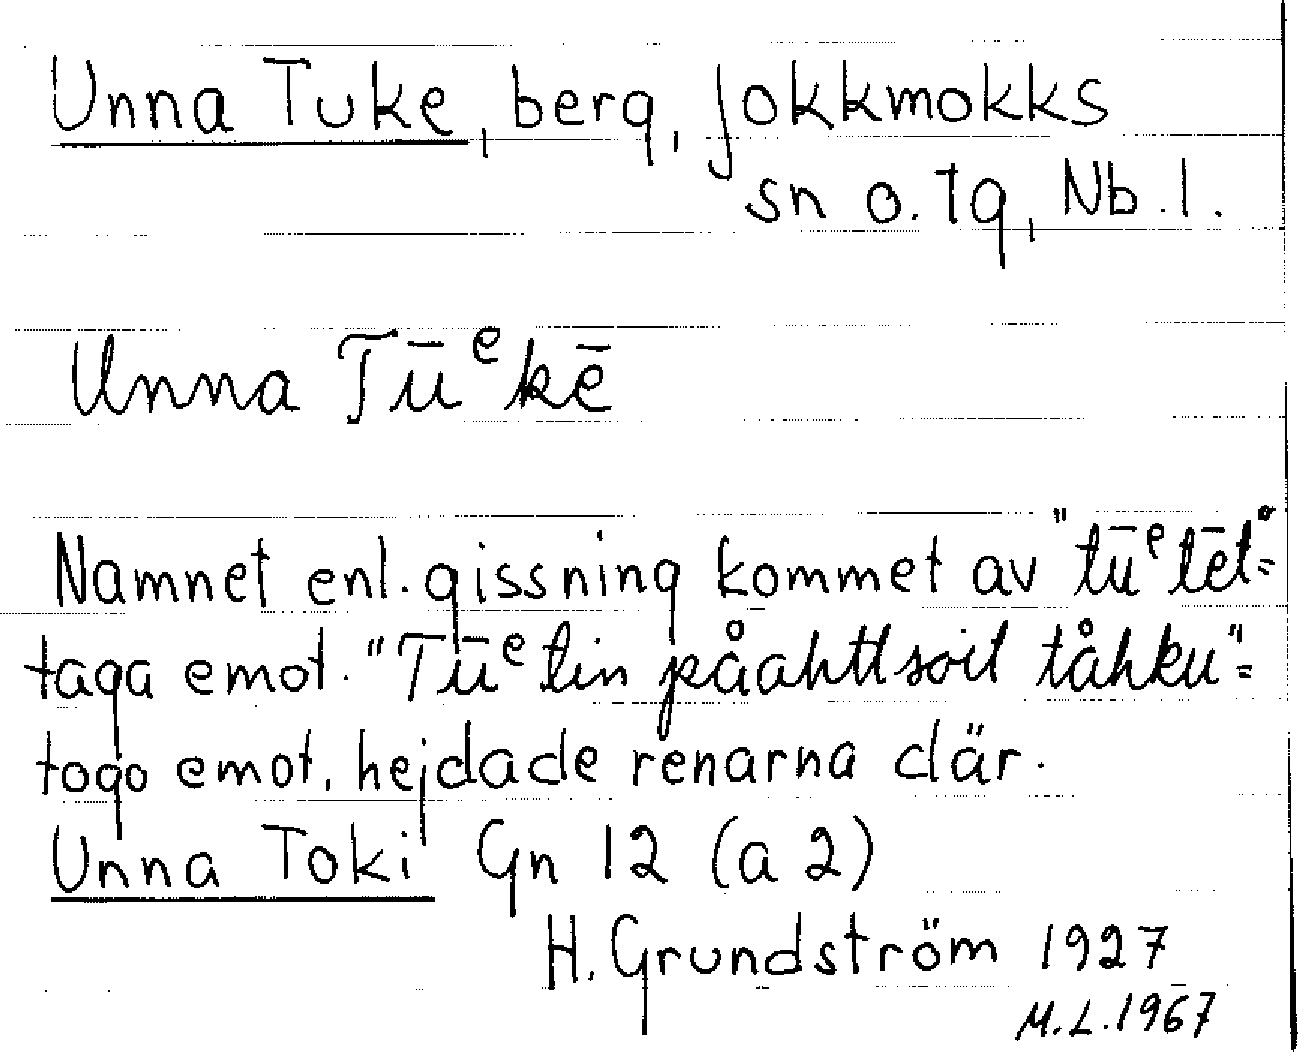 Unna Tuke, berg, Jokkmokks
sn o. tg, Nb. l.
Unna Tūᵉkē
Namnet enl. gissning kommet av "tūᵉtēt"=
taga emot. "Tūᵉtin påahttsoit tåhku"=
togo emot, hejdade renarna där.
Unna Toki Gn 12 (a 2)
H. Grundström 1927
M.L. 1967